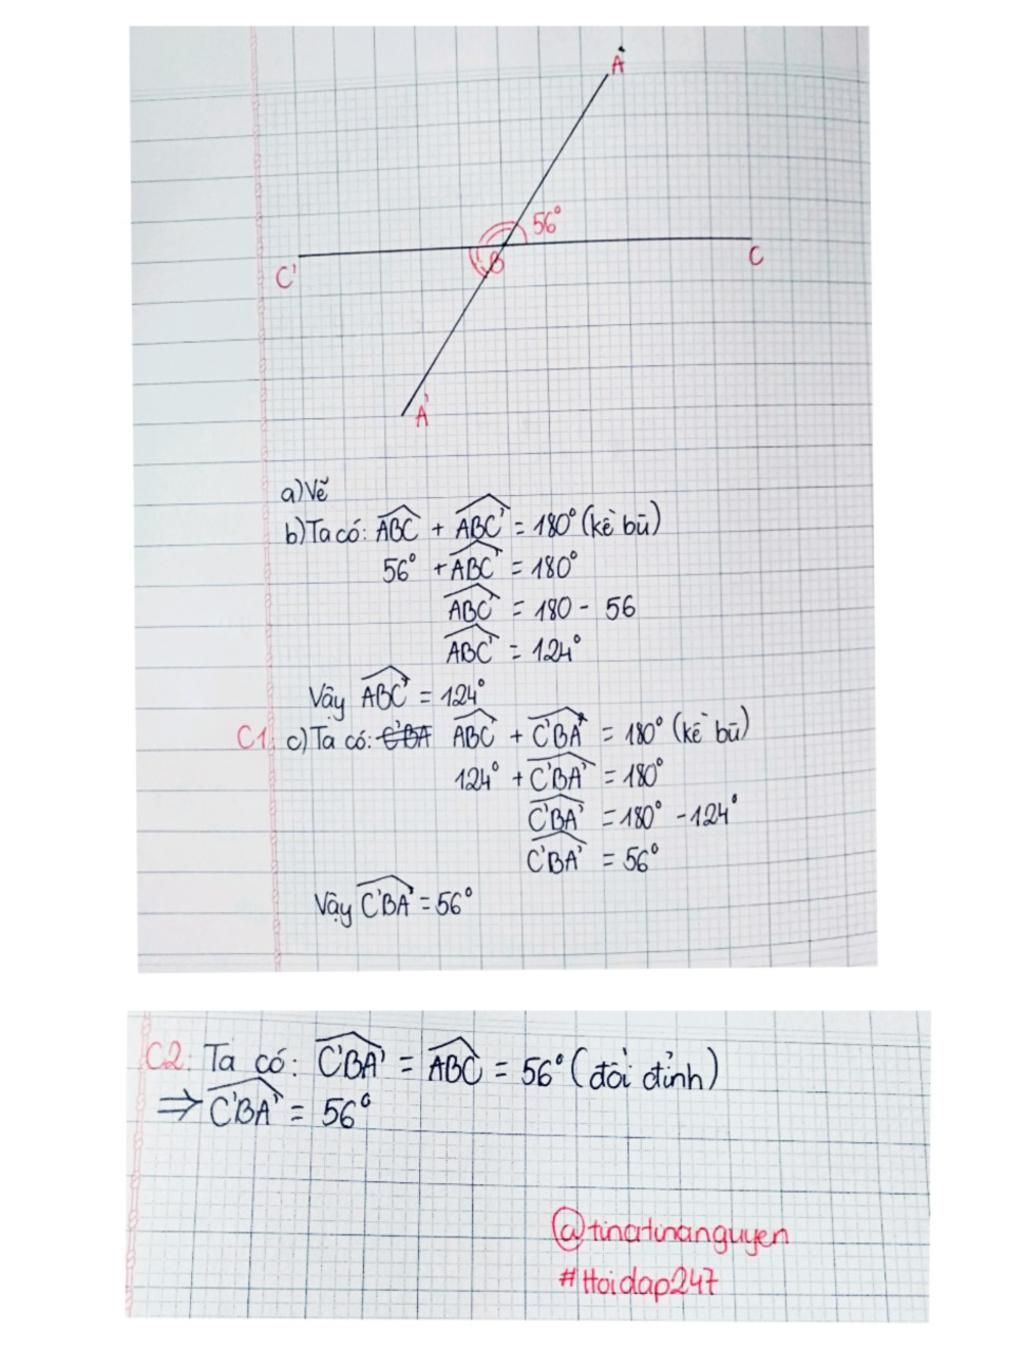 A
56°
C'
B
C
A'
a) Vẽ
b) Ta có: ABC + ABC' = 180° (kề bù)
56° + ABC' = 180°
ABC' = 180 - 56
ABC' = 124°
Vậy ABC' = 124°
C1. c) Ta có: C'BA ABC' + C'BA' = 180° (kề bù)
124° + C'BA' = 180°
C'BA' = 180° - 124°
C'BA' = 56°
Vậy C'BA' = 56°
C2: Ta có: C'BA' = ABC = 56° (đối đỉnh)
⇒ C'BA' = 56°
@tinatinanguyen
#Hoidap247